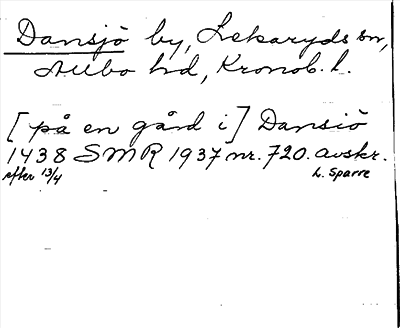 Dansjö by, Lekaryds sn,
Allbo hd, Kronob. l.
[på en gård i] Dansiö
1438 SMR 1937 nr. 720. avskr.
efter 13/4 L. Sparre